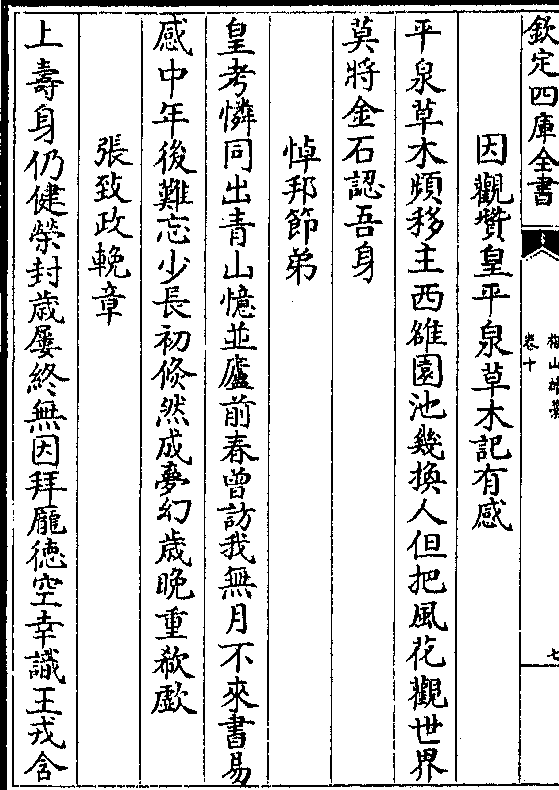 欽定四庫全書
卷十
七
因觀贊皇平泉草木記有感
平泉草木頻移主西雒園池幾換人但把風花觀世界
莫將金石認吾身
悼邦節弟
皇考憐同出青山憶並廬前春曾訪我無月不來書易
感中年後難忘少長初倐然成夢幻歳晚重欷歔
張致政輓章
上壽身仍健榮封歳屢終無因拜龎徳空幸識王戎含